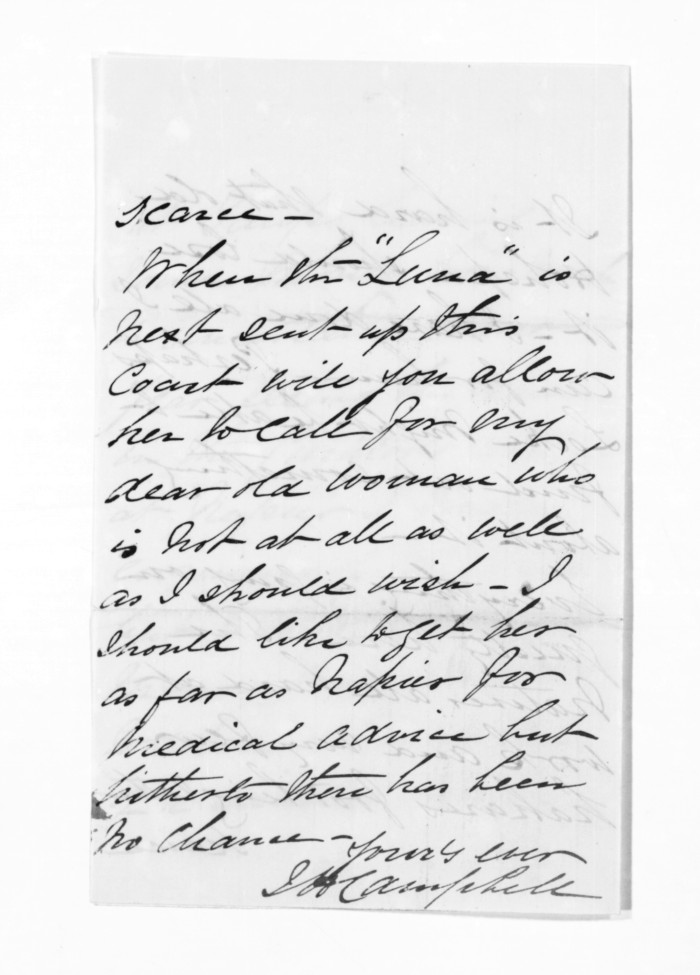 scarce -
When the "Luna" is
next sent up this
Coast will you allow
her to call for my
dear old woman who
is not at all as well
as I should wish - I
should like to get her
as far as Napier for
medical advice but
hitherto there has been
no chance -
Yours ever
Campbell